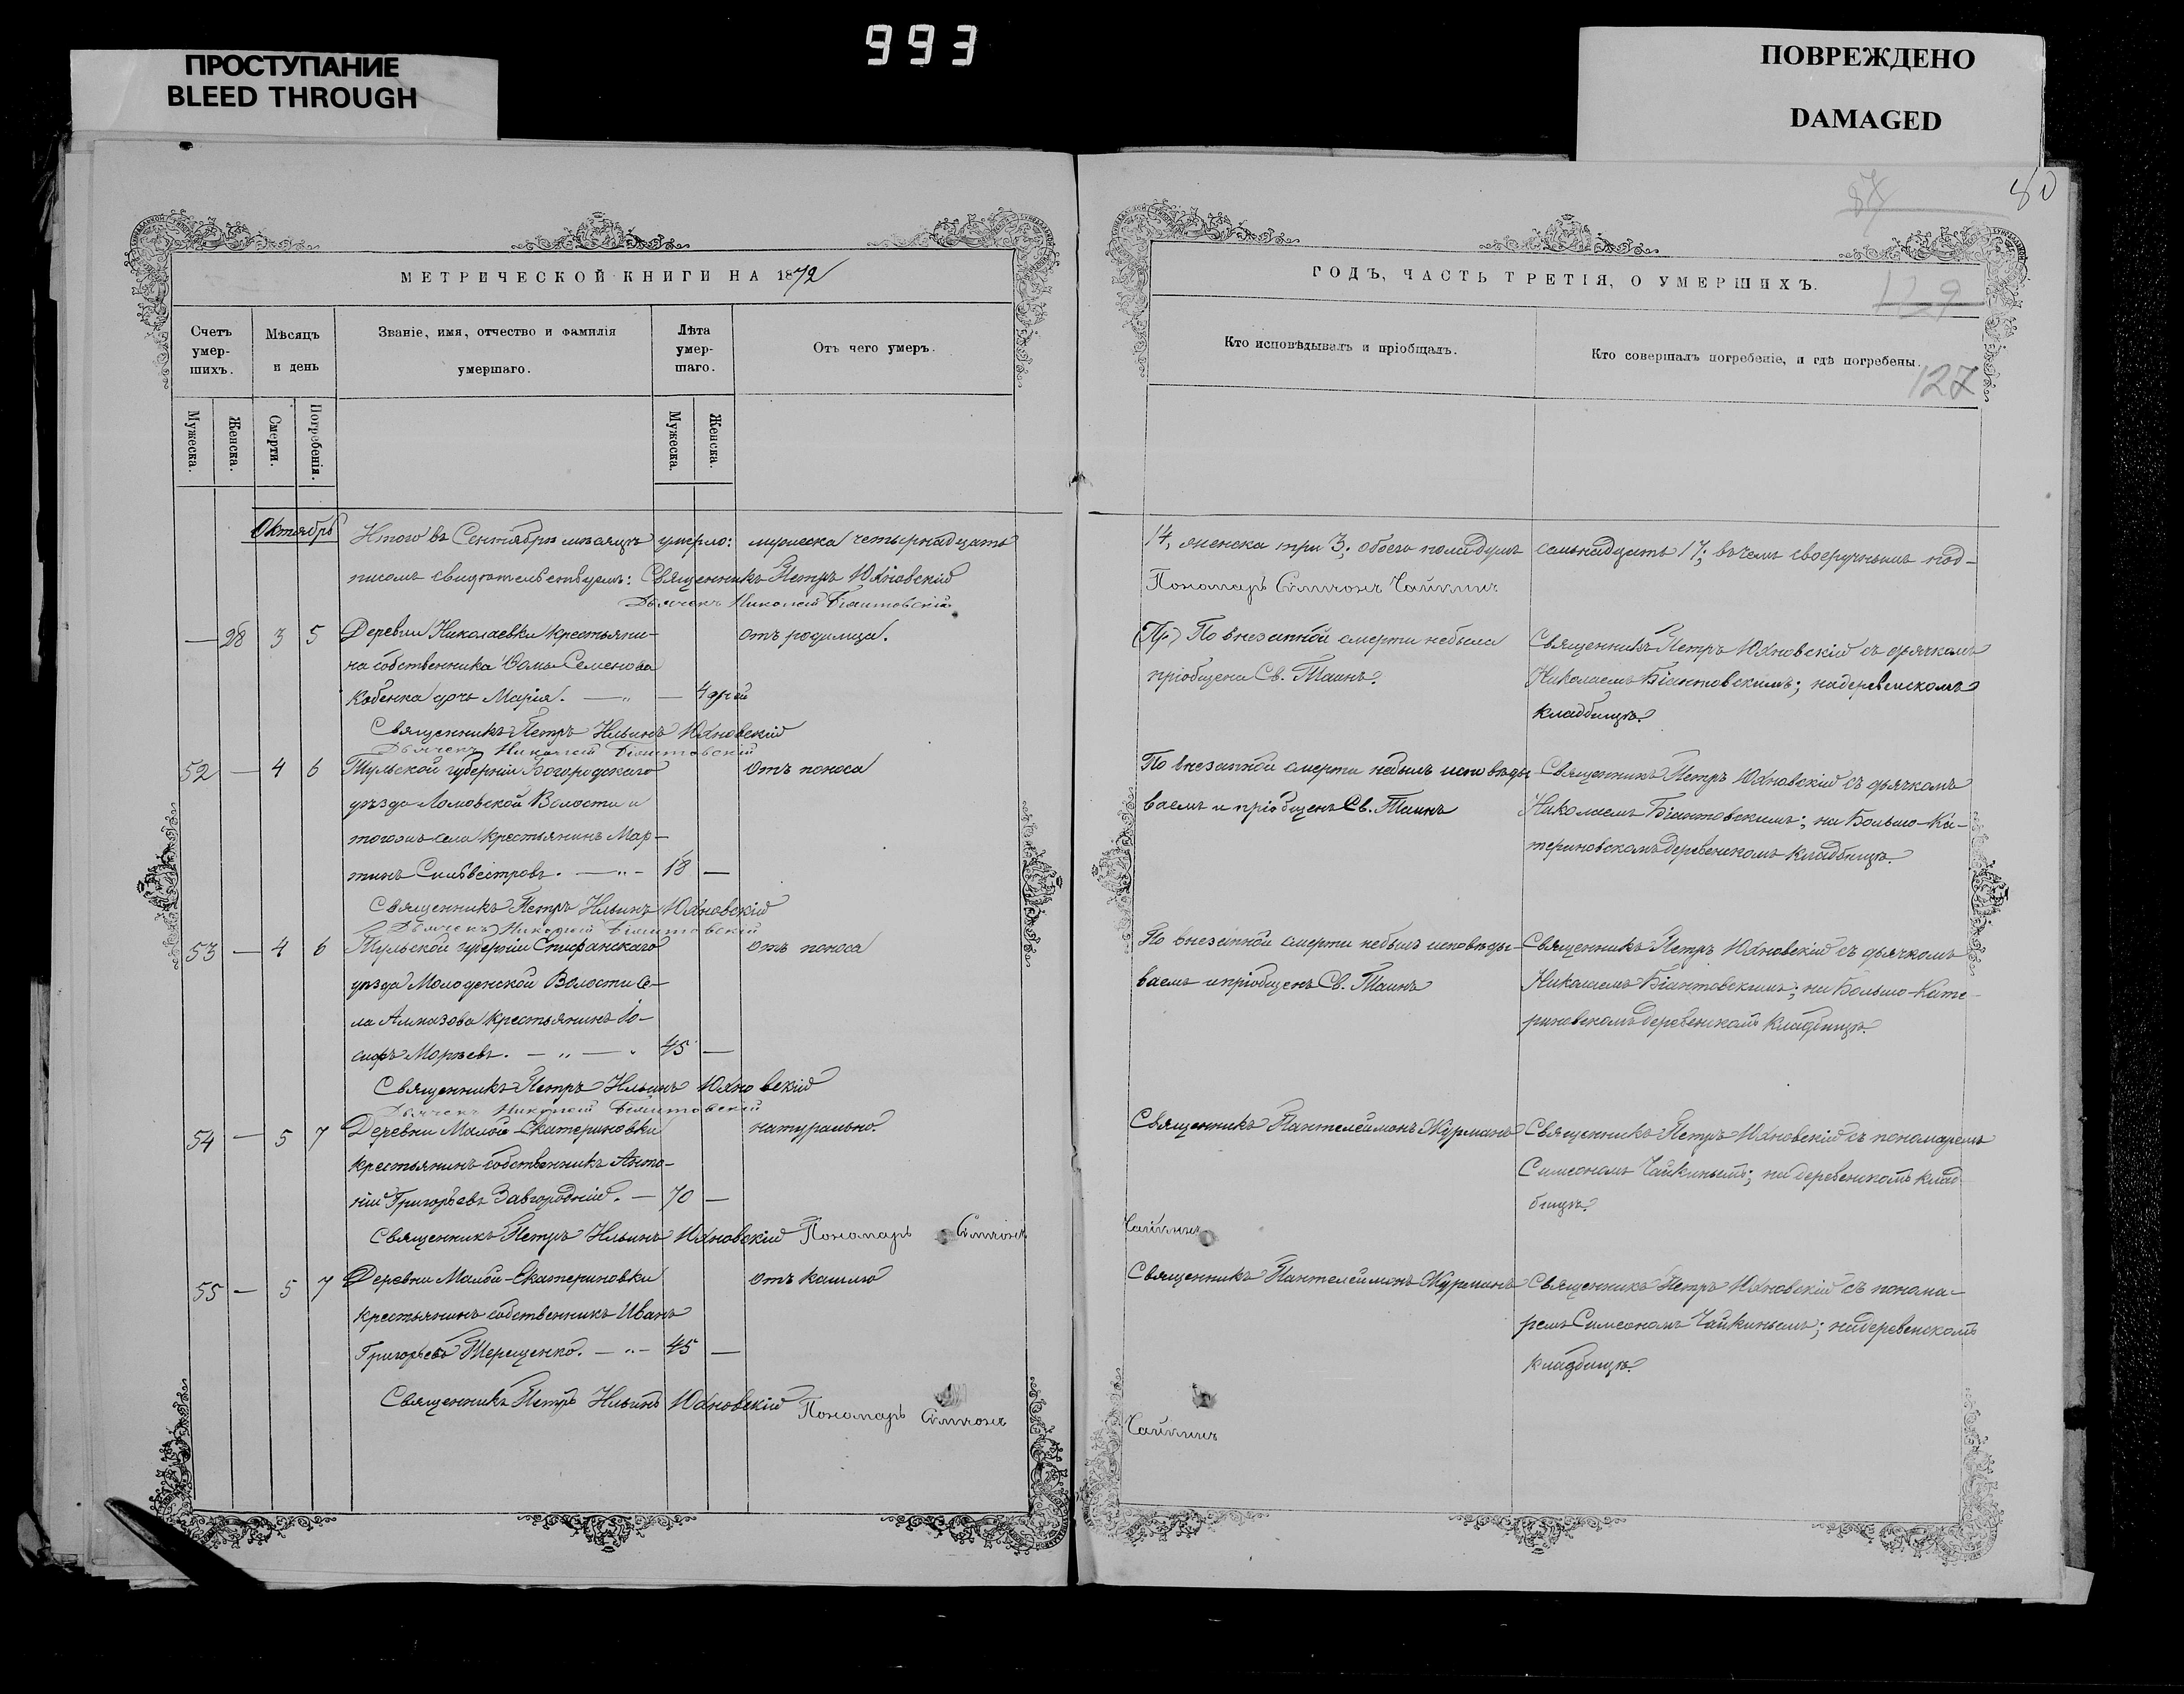 993
ПРОСТУПАНИЕ
BLEED THROUGH
ПОВРЕЖДЕНО
DAMAGED
80
87
МЕТРИЧЕСКОЙ КНИГИ НА 1872
Счетъ умершихъ.
Мѣсяцъ и день
Званіе, имя, отчество и фамилія умершаго.
Лѣта умершаго.
Отъ чего умеръ.
Мужеска.
Женска.
Смерти.
Погребенія.
Мужеска.
Женска.
ГОДЪ, ЧАСТЬ ТРЕТІЯ, О УМЕРШИХЪ.
129
Кто исповѣдывалъ и пріобщалъ.
Кто совершалъ погребеніе, и гдѣ погребены.
127
Октябрь
Итого въ Сентябрѣ мѣсяцѣ умерло: мужеска четырнадцать 14, женска три 3; обоего пола душъ семьнадцать 17; въ чемъ своеручнымъ под-
писомъ свидѣтельствуемъ: Священникъ Петръ Юхновскій
Дьячекъ Николай Біантовскій
Пономарь Симеонъ Чайкинъ
— 28 3 5 Деревни Николаевки крестьяни-
на собственника Фомы Семенова
Кобенка дочь Марія. — „ — 4 дней
отъ родимца.
(Пр) По внезапной смерти небыла
пріобщена Св. Таинъ.
Священникъ Петръ Юхновскій съ дьячкомъ
Николаемъ Біантовскимъ; на деревенскомъ
кладбищѣ.
Священникъ Петръ Ильинъ Юхновскій
Дьячекъ Николай Біантовскій
52 — 4 6 Тульской губерніи Богородскаго
уѣзда Ломовской Волости и
тогожъ села крестьянинъ Мар-
тинъ Сильвестровъ. — „ — 18 —
Отъ поноса
По внезапной смерти небылъ исповѣды-
ваемъ и пріобщенъ Св. Таинъ
Священникъ Петръ Юхновскій съ дьячкомъ
Николаемъ Біантовскимъ; на Больше-Ка-
териновскомъ деревенскомъ кладбищѣ.
Священникъ Петръ Ильинъ Юхновскій
Дьячекъ Николай Біантовскій
53 — 4 6 Тульской губерніи Епифанскаго
уѣзда Молоденской Волости Се-
ла Алмазова крестьянинъ Іо-
сифъ Моръевъ. — „ — „ 45 —
отъ поноса
По внезапной смерти небылъ исповѣды-
ваемъ и пріобщенъ Св. Таинъ
Священникъ Петръ Юхновскій съ дьячкомъ
Николаемъ Біантовскимъ; на Больше-Кате-
риновскомъ деревенскомъ кладбищѣ.
Священникъ Петръ Ильинъ Юхновскій
Дьячекъ Николай Біантовскій
54 — 5 7 Деревни Малой-Екатериновки
крестьянинъ собственникъ Анто-
ній Григорьевъ Завгородній. — 70 —
натурально.
Священникъ Пантелеймонъ Журманъ
Священникъ Петръ Юхновскій съ пономаремъ
Симеономъ Чайкинымъ; на деревенскомъ клад-
бищѣ.
Священникъ Петръ Ильинъ Юхновскій Пономарь Симеонъ Чайкинъ
55 — 5 7 Деревни Малой-Екатериновки
крестьянинъ собственникъ Иванъ
Григорьевъ Терещенко. — „ — 45 —
отъ кашлю
Священникъ Пантелеймонъ Журманъ
Священникъ Петръ Юхновскій съ понома-
ремъ Симеономъ Чайкинымъ; на деревенскомъ
кладбищѣ.
Священникъ Петръ Ильинъ Юхновскій Пономарь Симеонъ Чайкинъ